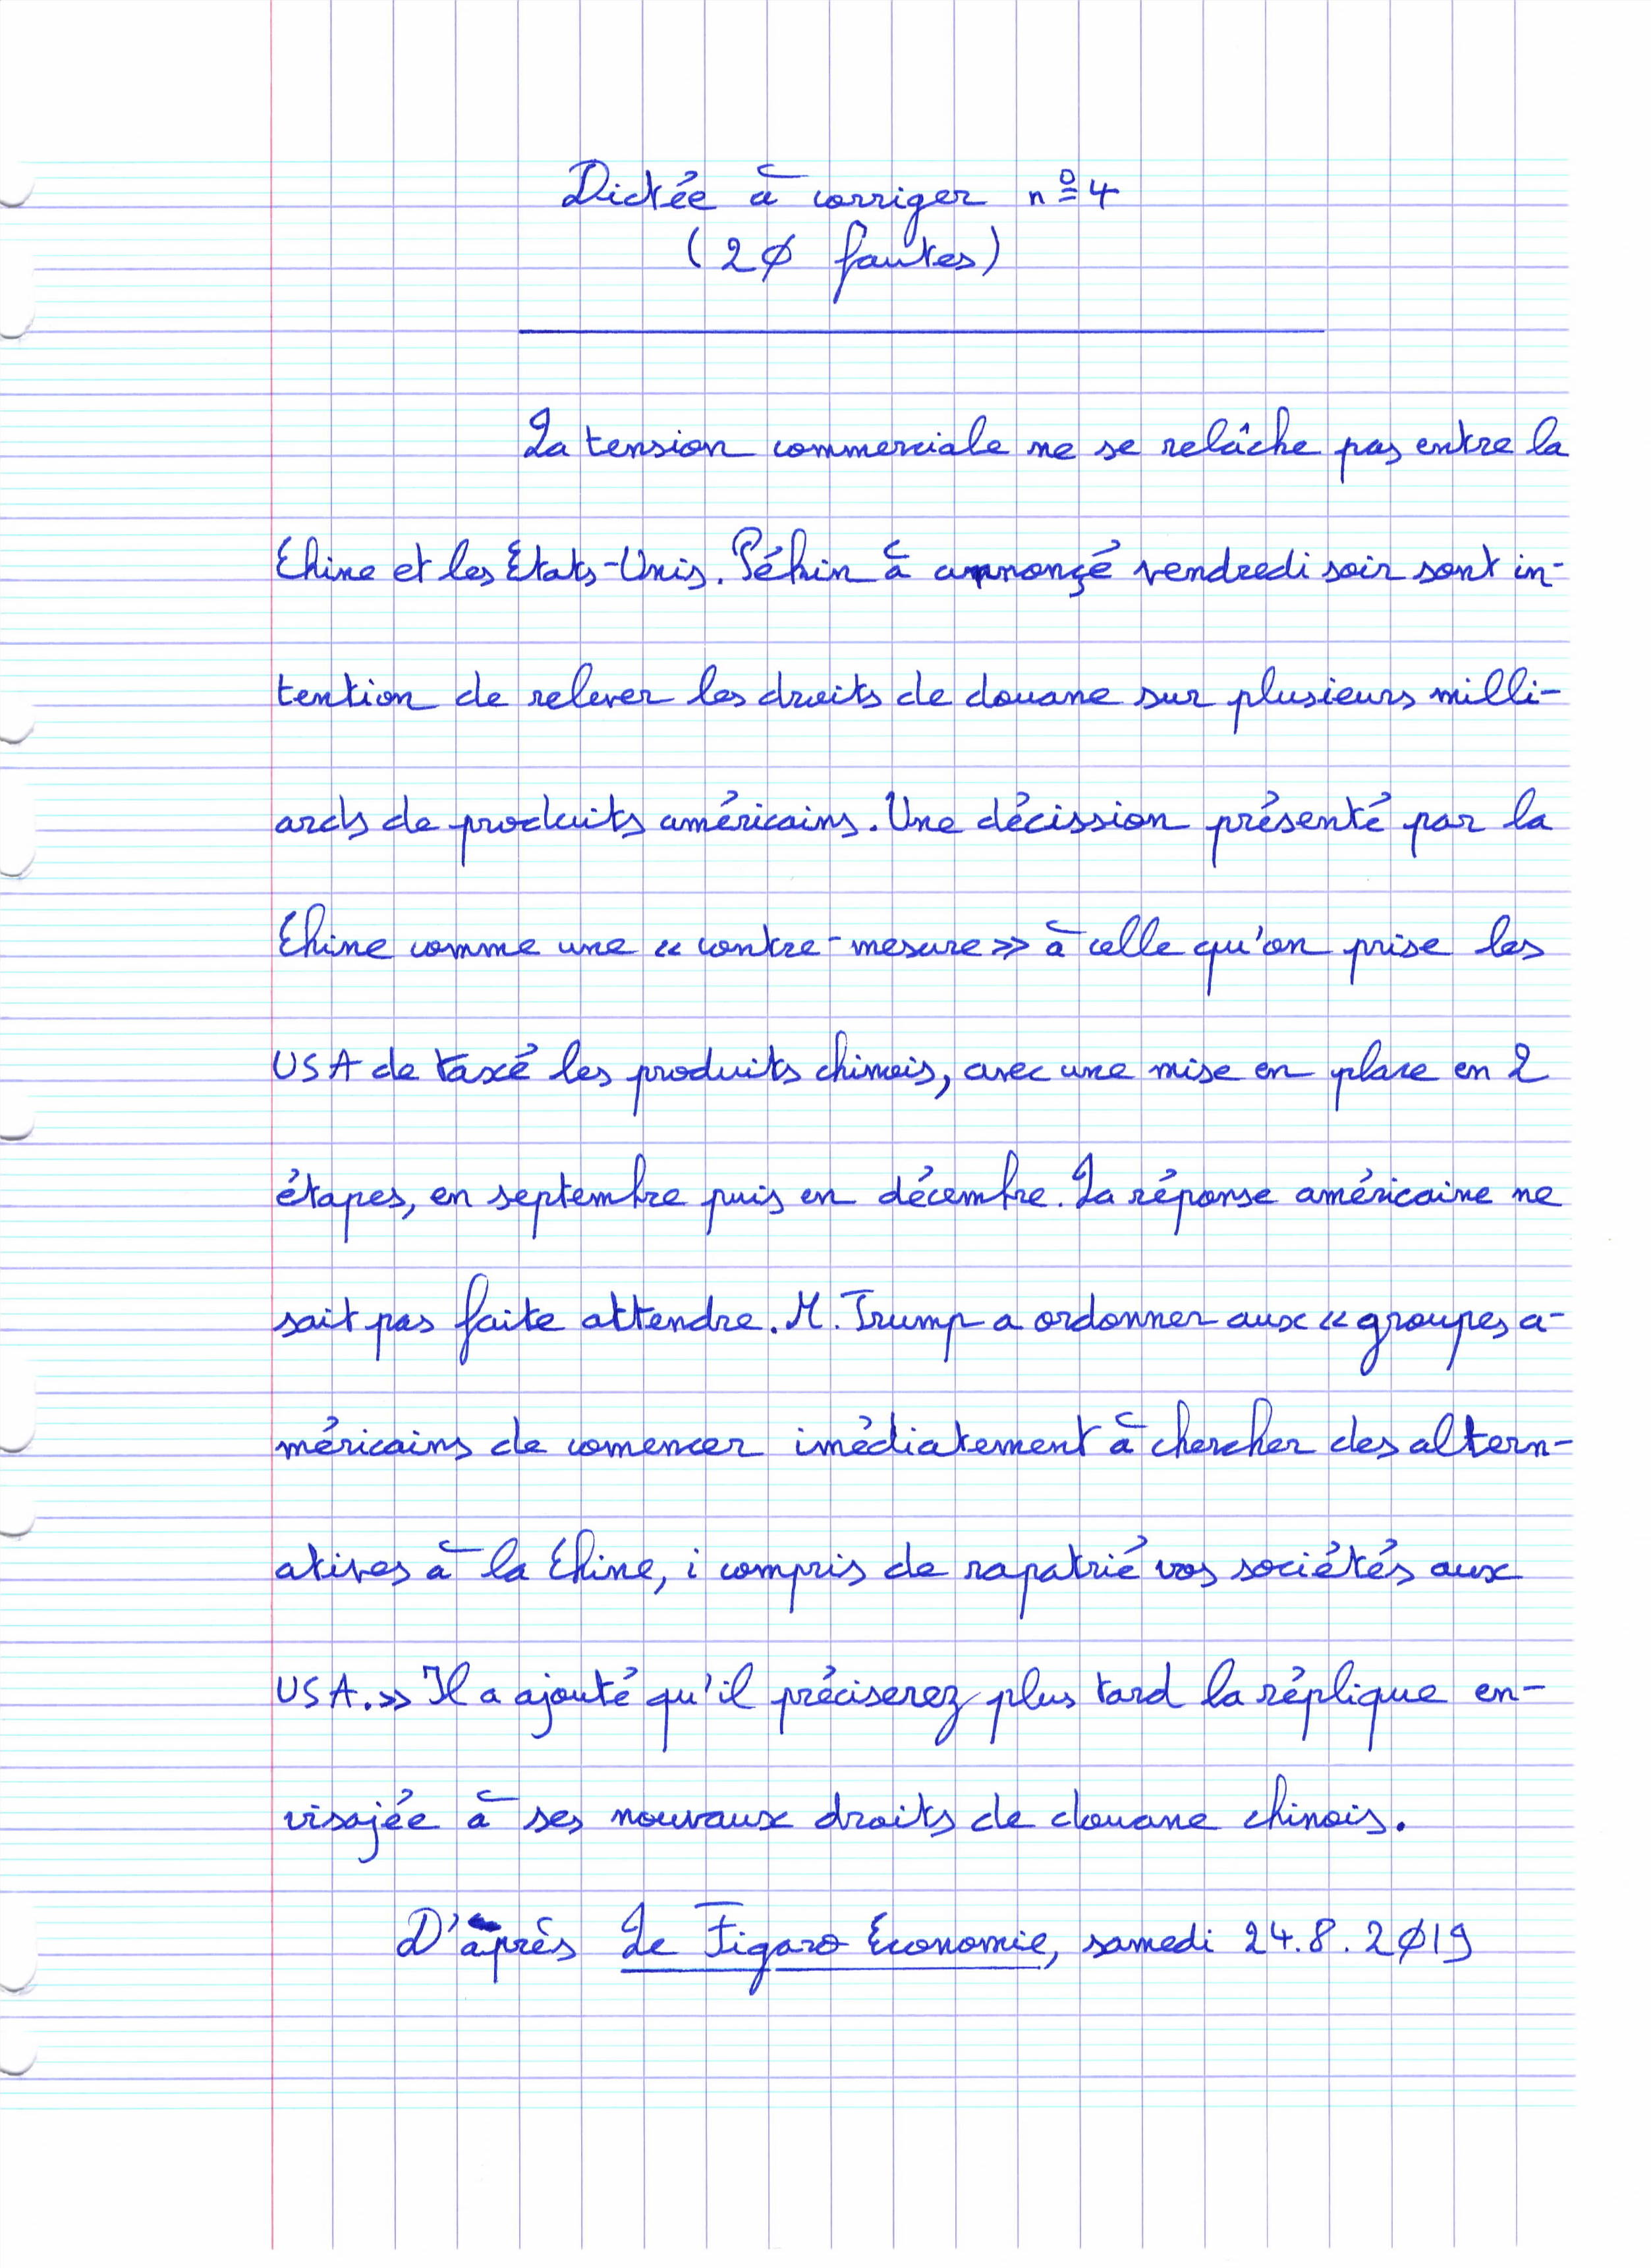 Dictée à corriger nº4
(20 fautes)
La tension commerciale ne se relâche pas entre la
Chine et les Etats-Unis. Pékin à annonçé vendredi soir sont in-
tention de relever les droits de douane sur plusieurs milli-
ards de produits américains. Une décission présenté par la
Chine comme une « contre-mesure » à celle qu'on prise les
USA de taxé les produits chinois, avec une mise en place en 2
étapes, en septembre puis en décembre. La réponse américaine ne
sait pas faite attendre. M. Trump a ordonner aux « groupes a-
méricains de comencer imédiatement à chercher des altern-
atives à la Chine, i compris de rapatrié vos sociétés aux
USA. » Il a ajouté qu'il préciserez plus tard la réplique en-
visajée à ses nouvaux droits de douane chinois.
D'après Le Figaro Économie, samedi 24.8.2019